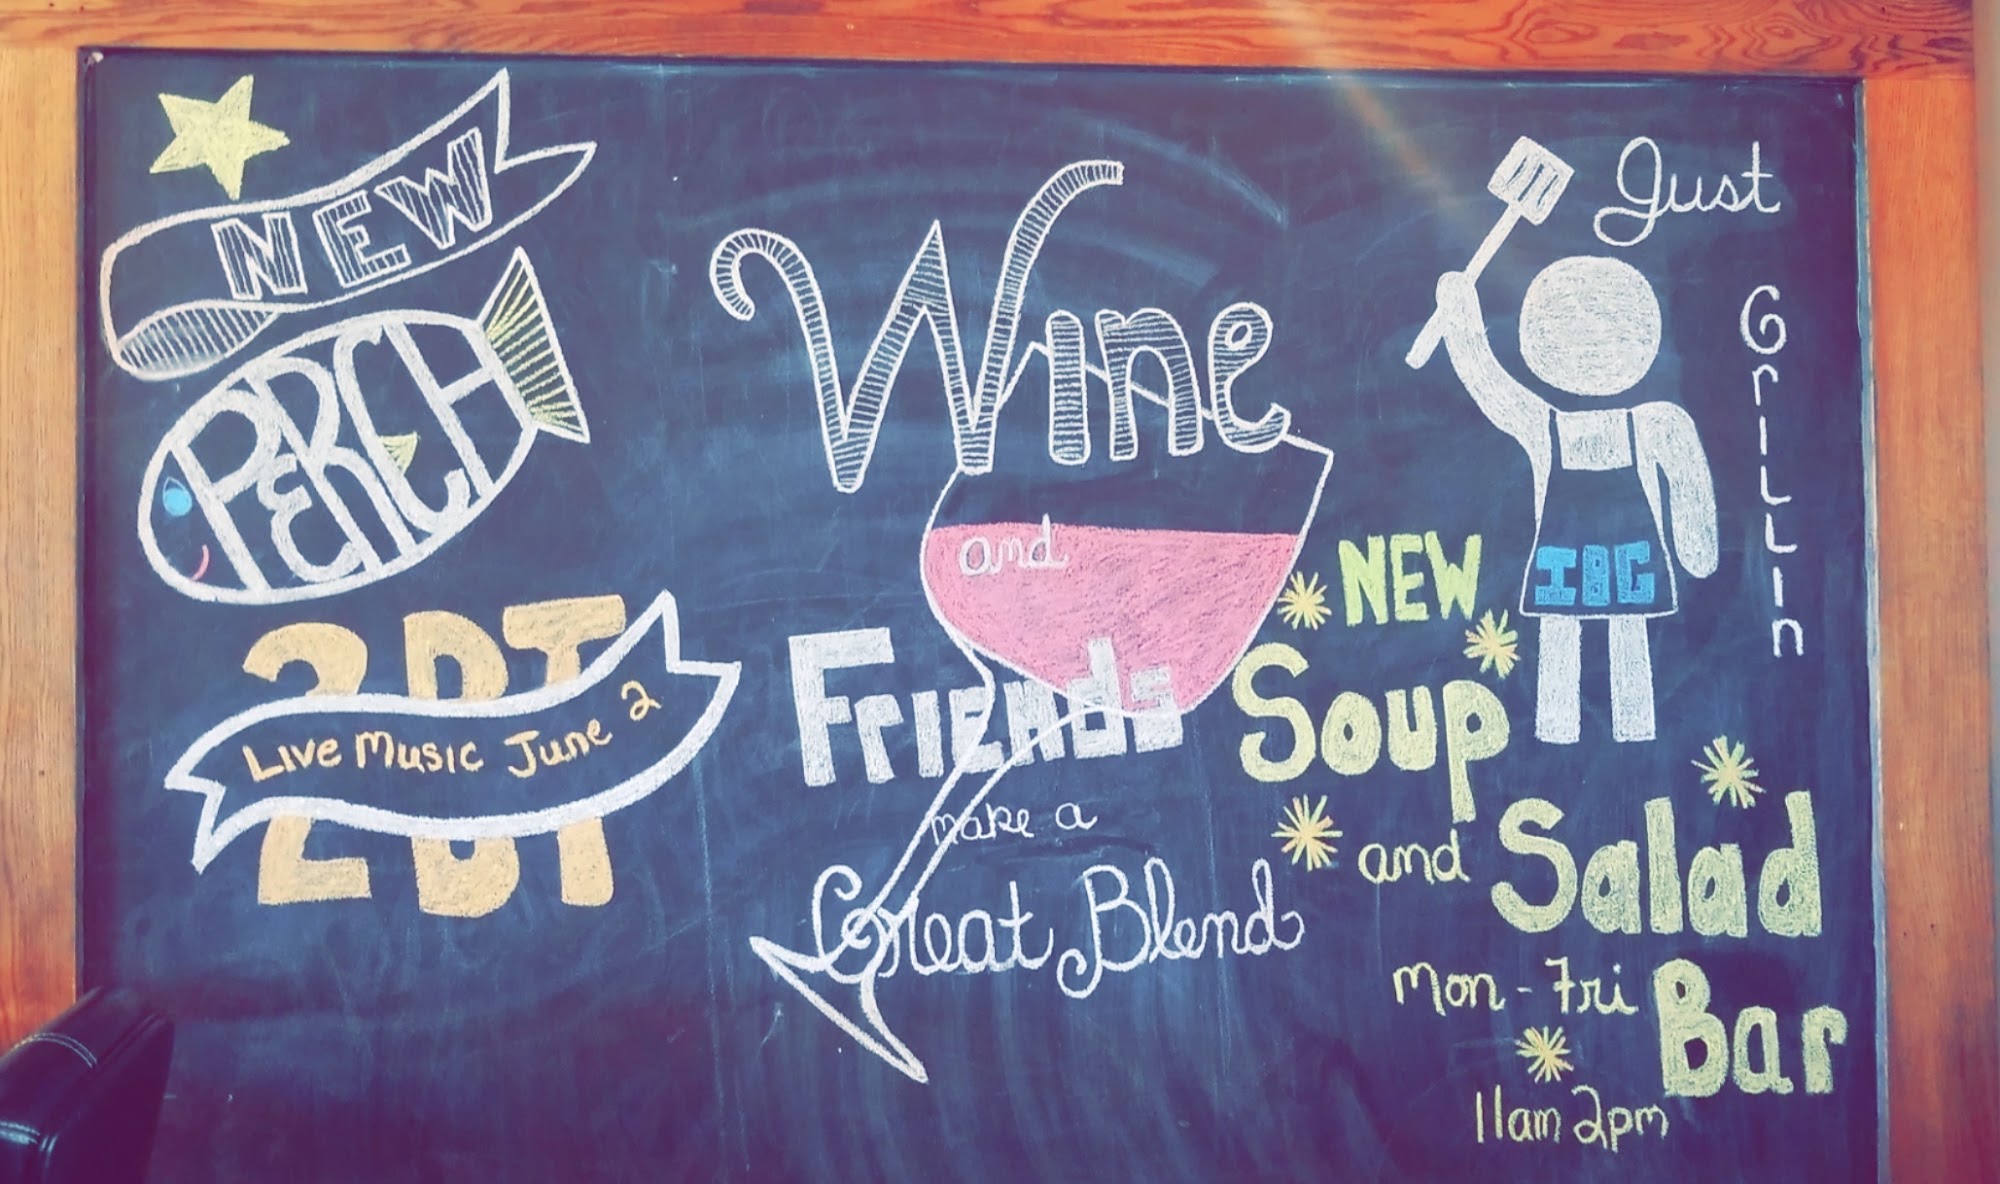 NEW
PERCH
2DT
Live Music June 2
Wine
and
Friends
make a
Great Blend
Just
GriLLin
IBG
NEW
Soup
and Salad
Mon - Fri Bar
11am 2pm